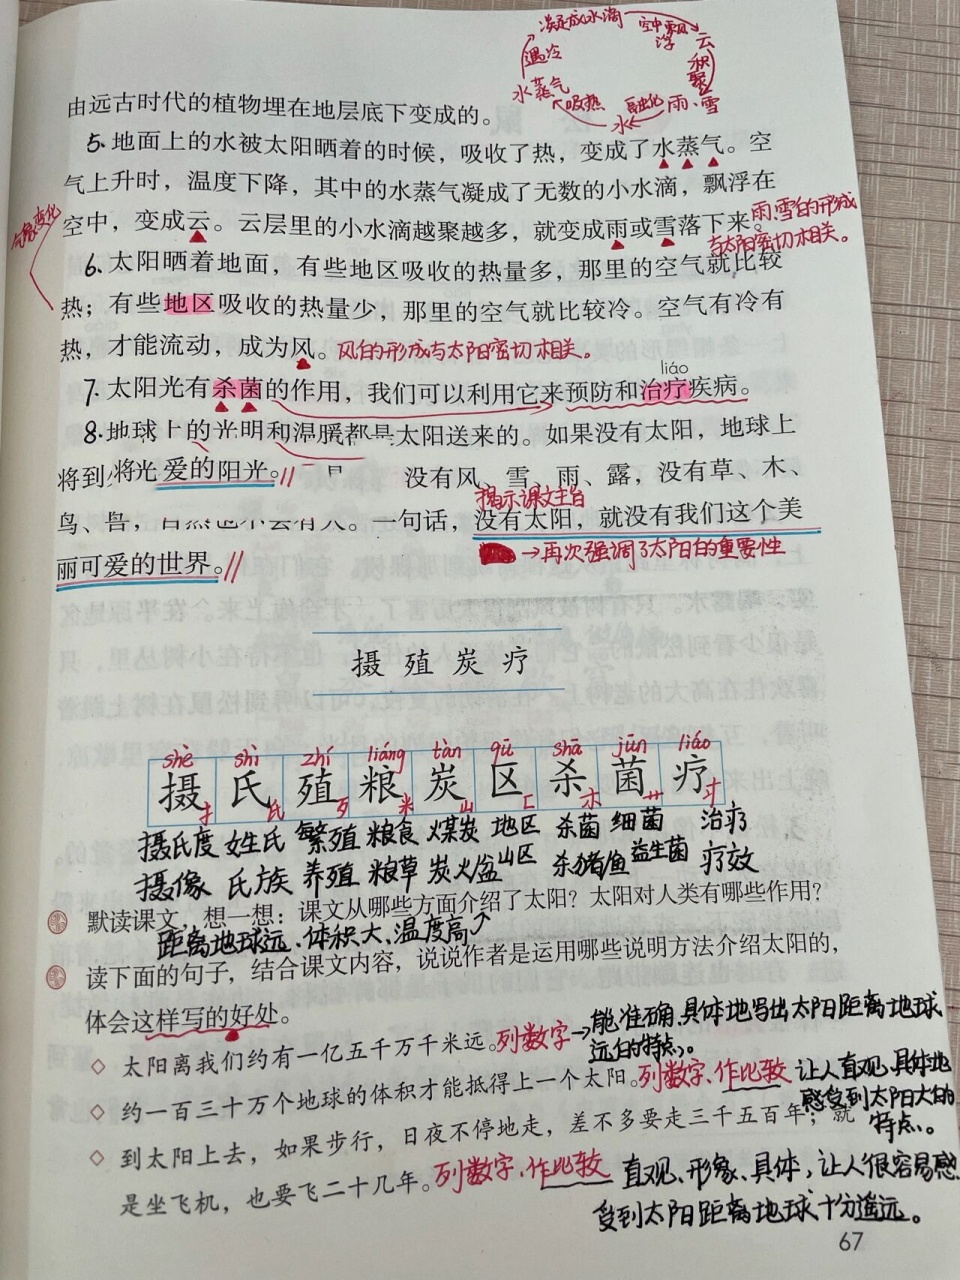 凝成水滴
空中飘浮
云
遇冷
积聚
水蒸气
吸热
水
雨、雪
由远古时代的植物埋在地层底下变成的。
5.地面上的水被太阳晒着的时候，吸收了热，变成了水蒸气。空
气上升时，温度下降，其中的水蒸气凝成了无数的小水滴，飘浮在
空中，变成云。云层里的小水滴越聚越多，就变成雨或雪落下来。
雨、雪的形成
与太阳密切相关。
气象变化
6.太阳晒着地面，有些地区吸收的热量多，那里的空气就比较
热；有些地区吸收的热量少，那里的空气就比较冷。空气有冷有
热，才能流动，成为风。风的形成与太阳密切相关。
liáo
7.太阳光有杀菌的作用，我们可以利用它来预防和治疗疾病。
8.地球上的光明和温暖都是太阳送来的。如果没有太阳，地球上
将到 将光 爱的阳光。 没有风、雪、雨、露，没有草、木、
揭示课文主旨
鸟、兽，自然也不会有人。一句话，没有太阳，就没有我们这个美
→再次强调了太阳的重要性
丽可爱的世界。
摄 殖 炭 疗
shè shì zhí liáng tàn qū shā jūn liáo
摄 氏 殖 粮 炭 区 杀 菌 疗
扌 氏 歹 米 山 匚 木 艹 寸
摄氏度 姓氏 繁殖 粮食 煤炭 地区 杀菌 细菌 治疗
摄像 氏族 养殖 粮草 炭火盆 山区 杀猪/鱼 益生菌 疗效
默读课文，想一想：课文从哪些方面介绍了太阳？太阳对人类有哪些作用？
距离地球远、体积大、温度高
读下面的句子，结合课文内容，说说作者是运用哪些说明方法介绍太阳的，
体会这样写的好处。
◇ 太阳离我们约有一亿五千万千米远。列数字→能准确、具体地写出太阳距离地球
远的特点。
◇ 约一百三十万个地球的体积才能抵得上一个太阳。列数字、作比较 让人直观、具体地
感受到太阳大的
特点。
◇ 到太阳上去，如果步行，日夜不停地走，差不多要走三千五百年；就
是坐飞机，也要飞二十几年。列数字、作比较 直观、形象、具体，让人很容易感
受到太阳距离地球十分遥远。
67